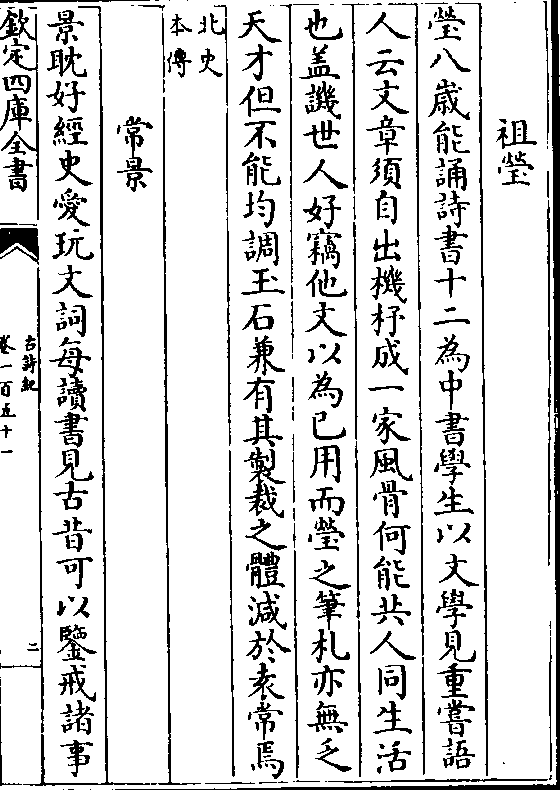 祖瑩
瑩八歳能誦詩書十二為中書學生以文學見重嘗語
人云文章須自出機杼成一家風骨何能共人同生活
也盖譏世人好竊他文以為已用而瑩之筆札亦無乏
天才但不能均調玉石兼有其製裁之體減於袁常焉
北史
本傳
常景
景耽好經史愛玩文詞每讀書見古昔可以鑒戒諸事
欽定四庫全書
古詩紀
卷一百五十一
二